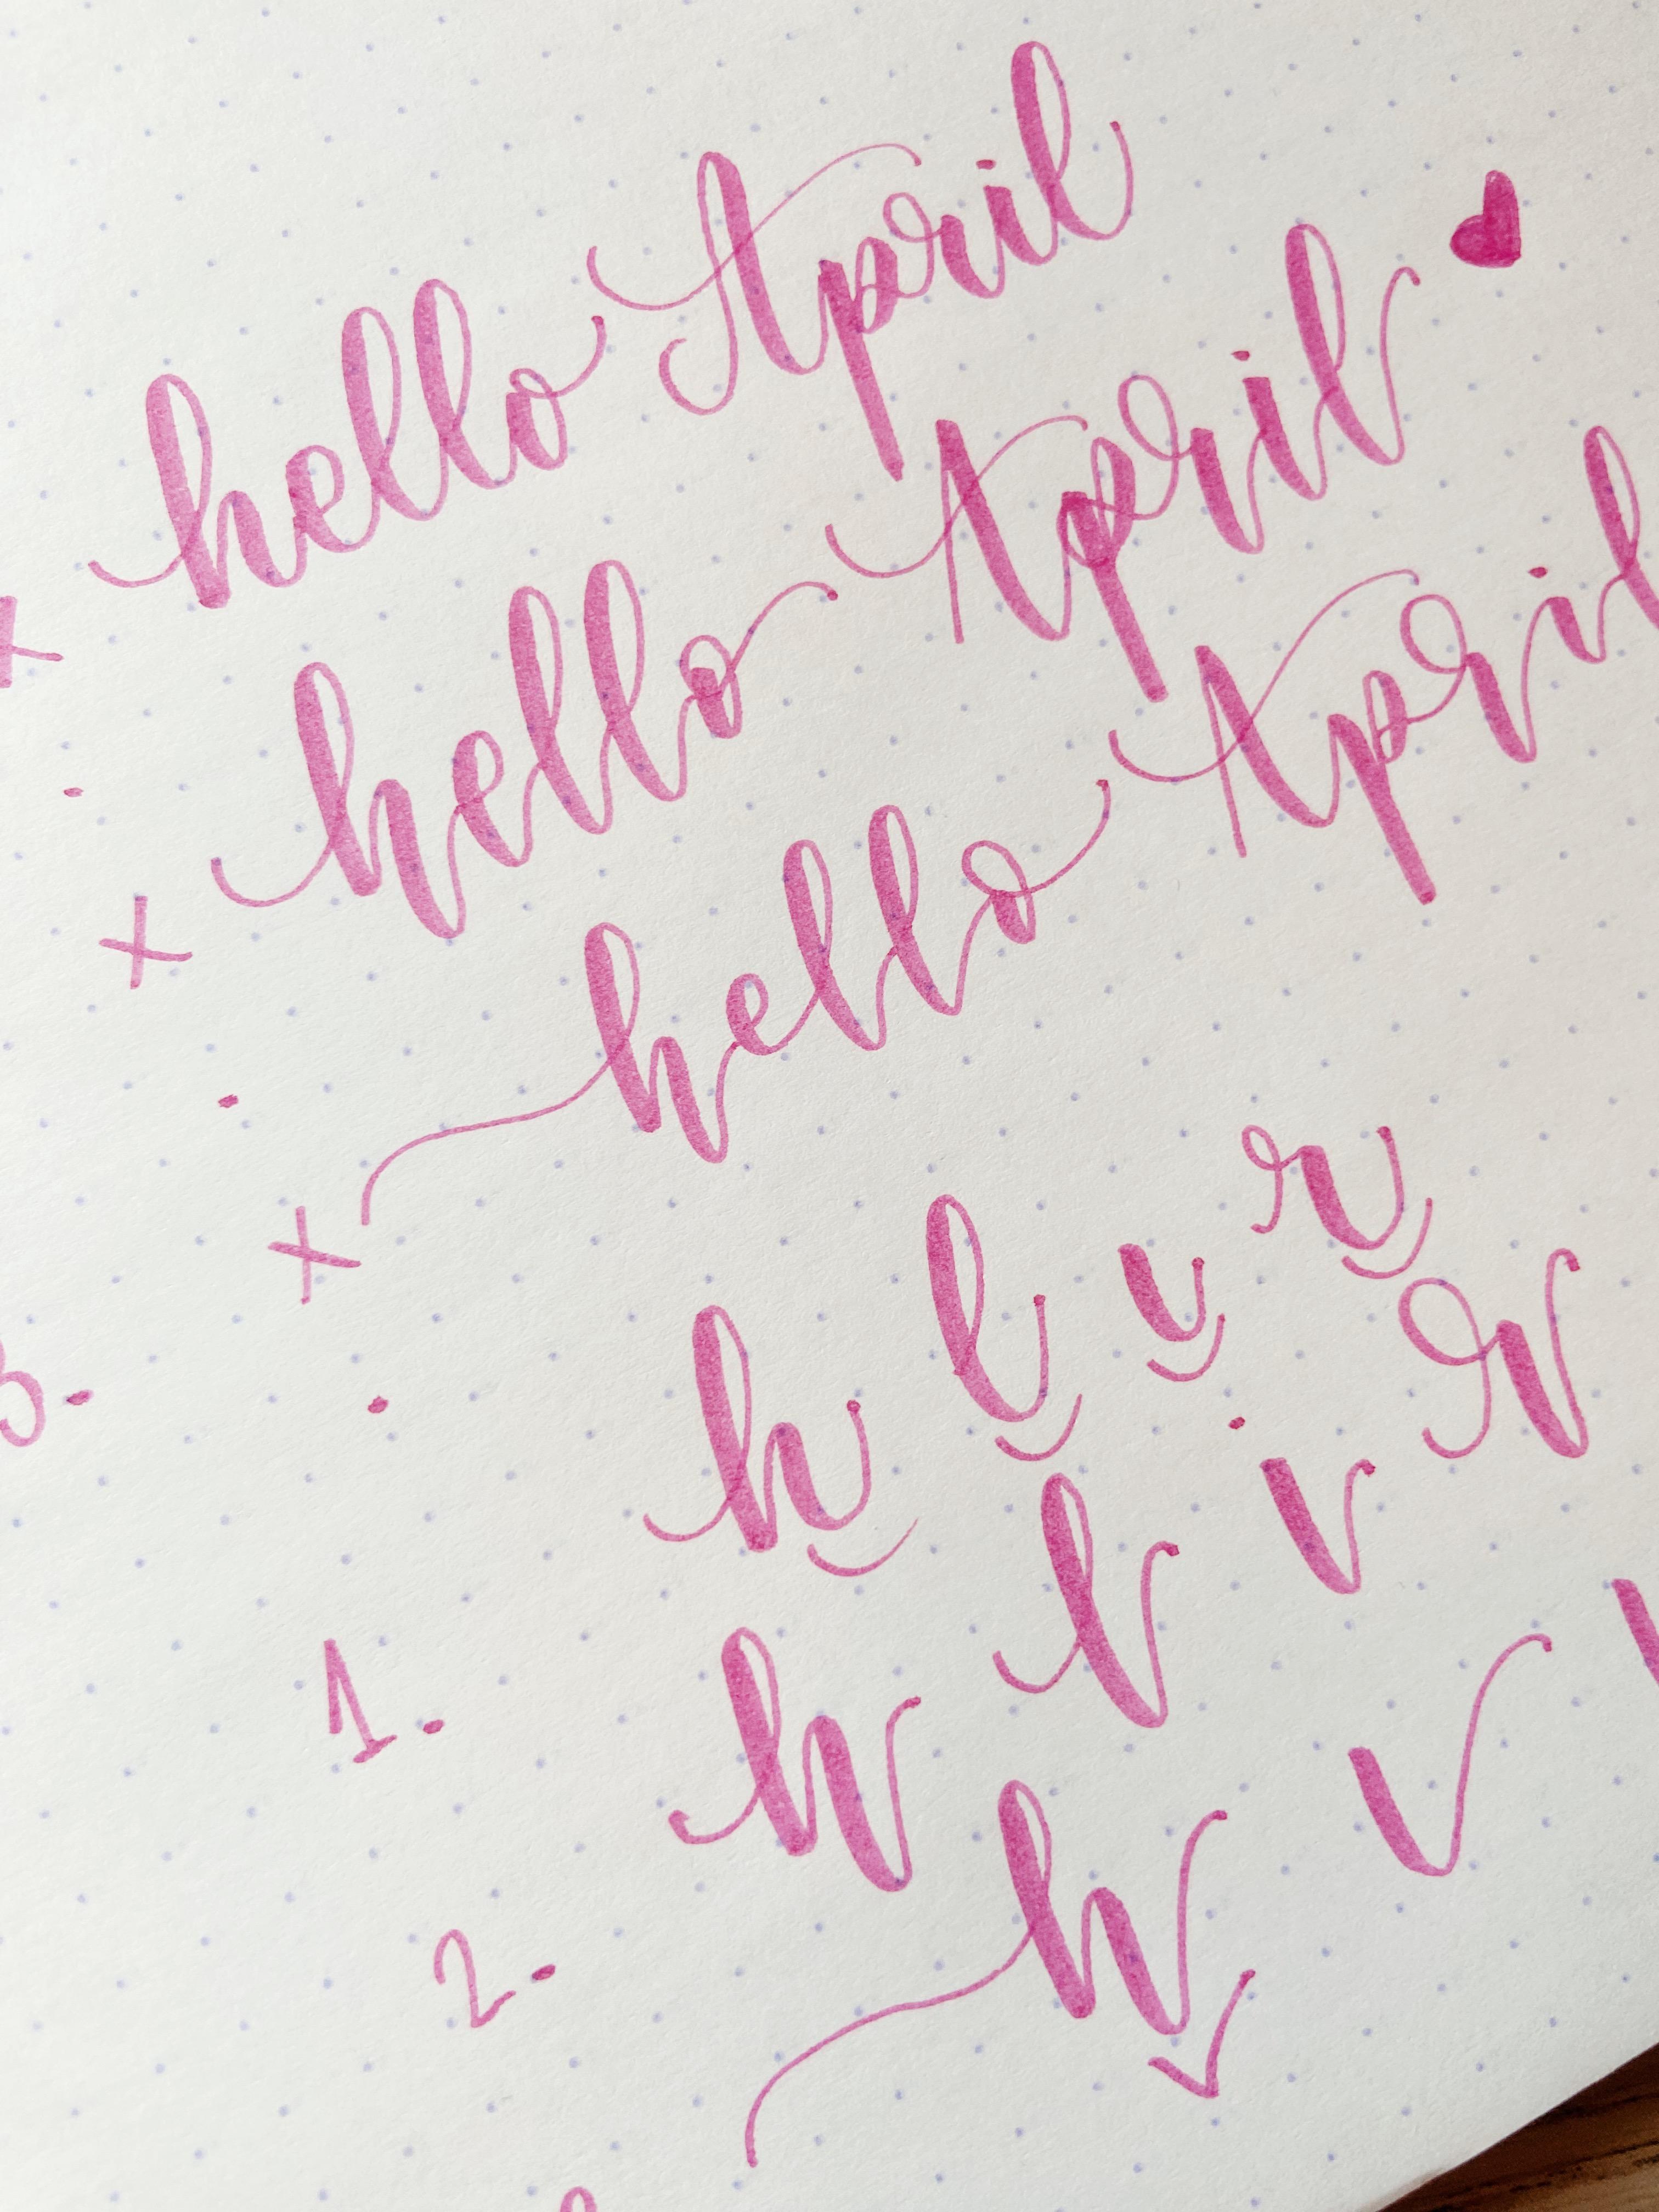 x hello April
x . hello April
x . hello April
3. . h l i r
1. h l i r
2. h